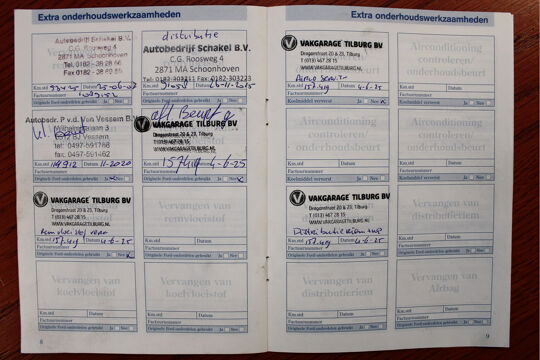 Extra onderhoudswerkzaamheden
Autobedrijf Schakel B.V.
C.G. Roosweg 4
2871 MA Schoonhoven
Tel. 0182-38 28 66
Km.std
Datum
Factuurnummer
distributie
Autobedrijf Schakel B.V.
C.G. Roosweg 4
2871 MA Schoonhoven
Tel: 0182-383211 Fax: 0182-303223
Km.std
Datum
Factuurnummer
Originele Ford-onderdelen gebruikt Ja Nee
Autobedr. P v.d. Ven Vessem B.V.
Wilhelminalaan 3
Vessem
tel: 0497-591768
fax: 0497-591462
Km.std 119912 Datum 11-2020
Factuurnummer
Originele Ford-onderdelen gebruikt Ja Nee
VAKGARAGE TILBURG BV
Dragonstraat 20 & 23, Tilburg
T (013) 467 28 15
WWW.VAKGARAGETILBURG.NL
Km.std 157419 4-6-25
Factuurnummer
Originele Ford-onderdelen gebruikt Ja Nee
VAKGARAGE TILBURG BV
Dragonstraat 20 & 23, Tilburg
T (013) 467 28 15
WWW.VAKGARAGETILBURG.NL
Km.std 157419 Datum 4-6-25
Factuurnummer
Originele Ford-onderdelen gebruikt Ja Nee
Vervangen van
remvloeistof
Km.std Datum
Factuurnummer
Originele Ford-onderdelen gebruikt Ja Nee
Vervangen van
koelvloeistof
Km.std Datum
Factuurnummer
Originele Ford-onderdelen gebruikt Ja Nee
Vervangen van
koelvloeistof
Km.std Datum
Factuurnummer
Originele Ford-onderdelen gebruikt Ja Nee
8
Extra onderhoudswerkzaamheden
VAKGARAGE TILBURG BV
Dragonstraat 20 & 23, Tilburg
T (013) 467 28 15
WWW.VAKGARAGETILBURG.NL
Km.std 157419 Datum 4-6-25
Factuurnummer
Koelmiddel ververst Ja Nee
Airconditioning
controleren/
onderhoudsbeurt
Km.std Datum
Factuurnummer
Koelmiddel ververst Ja Nee
Airconditioning
controleren/
onderhoudsbeurt
Km.std Datum
Factuurnummer
Koelmiddel ververst Ja Nee
Airconditioning
controleren/
onderhoudsbeurt
Km.std Datum
Factuurnummer
Koelmiddel ververst Ja Nee
VAKGARAGE TILBURG BV
Dragonstraat 20 & 23, Tilburg
T (013) 467 28 15
WWW.VAKGARAGETILBURG.NL
Km.std 157419 Datum 4-6-25
Factuurnummer
Originele Ford-onderdelen gebruikt Ja Nee
Vervangen van
distributieriem
Km.std Datum
Factuurnummer
Originele Ford-onderdelen gebruikt Ja Nee
Vervangen van
distributieriem
Km.std Datum
Factuurnummer
Originele Ford-onderdelen gebruikt Ja Nee
Vervangen van
Airbag
Km.std Datum
Factuurnummer
Originele Ford-onderdelen gebruikt Ja Nee
9